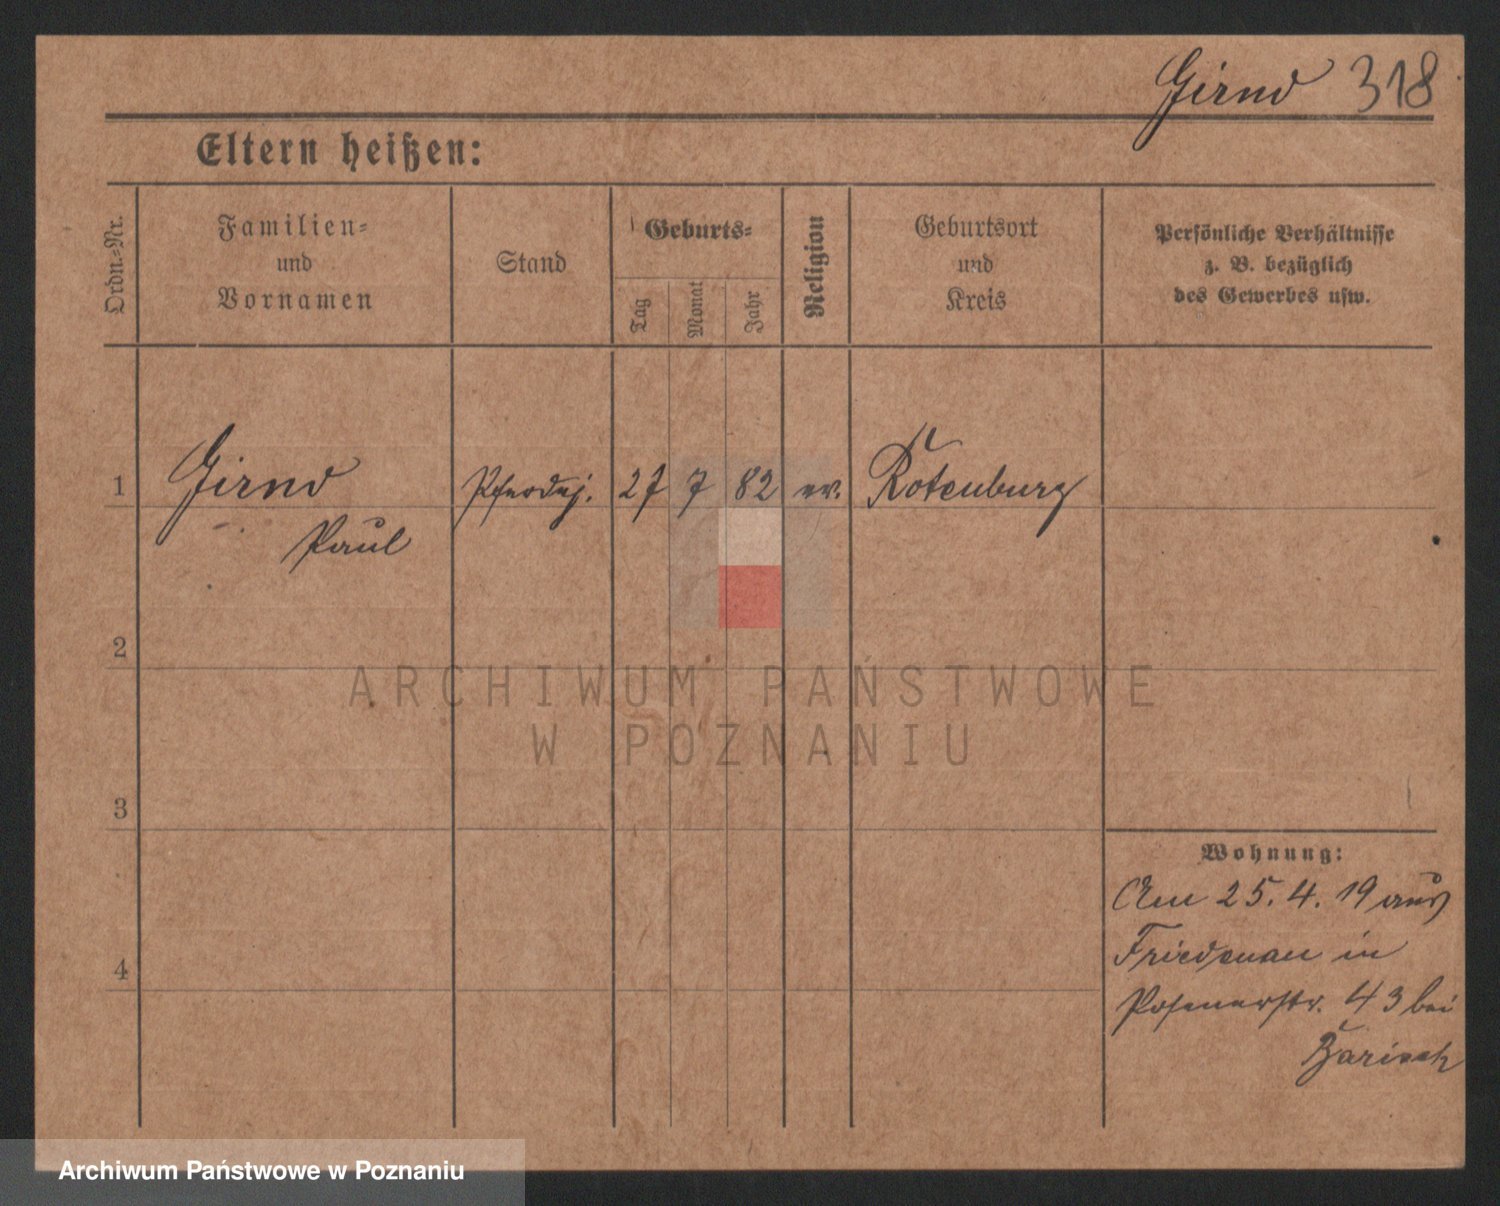 Girnd 318
Eltern heißen:
Ordn.=Nr.
Familien=
und
Vornamen
Stand
Geburts=
Tag
Monat
Jahr
Religion
Geburtsort
und
Kreis
Persönliche Verhältnisse
z. B. bezüglich
des Gewerbes usw.
1 Girnd 27 7 82 ev. Rotenburg
Paul
2
3
4
Wohnung:
Am 25. 4. 19 aus
Friedenau in
Posenerstr. 43 bei
ARCHIWUM PAŃSTWOWE
W POZNANIU
Archiwum Państwowe w Poznaniu